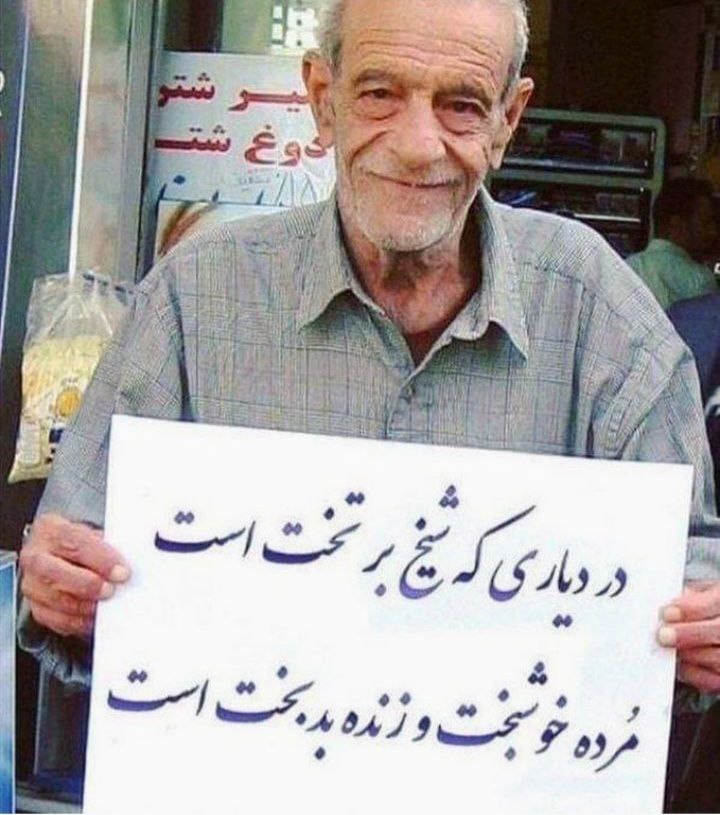 شتر
دوغ شتر
در دیاری که شیخ بر تخت است
مُرده خوشبخت و زنده بدبخت است